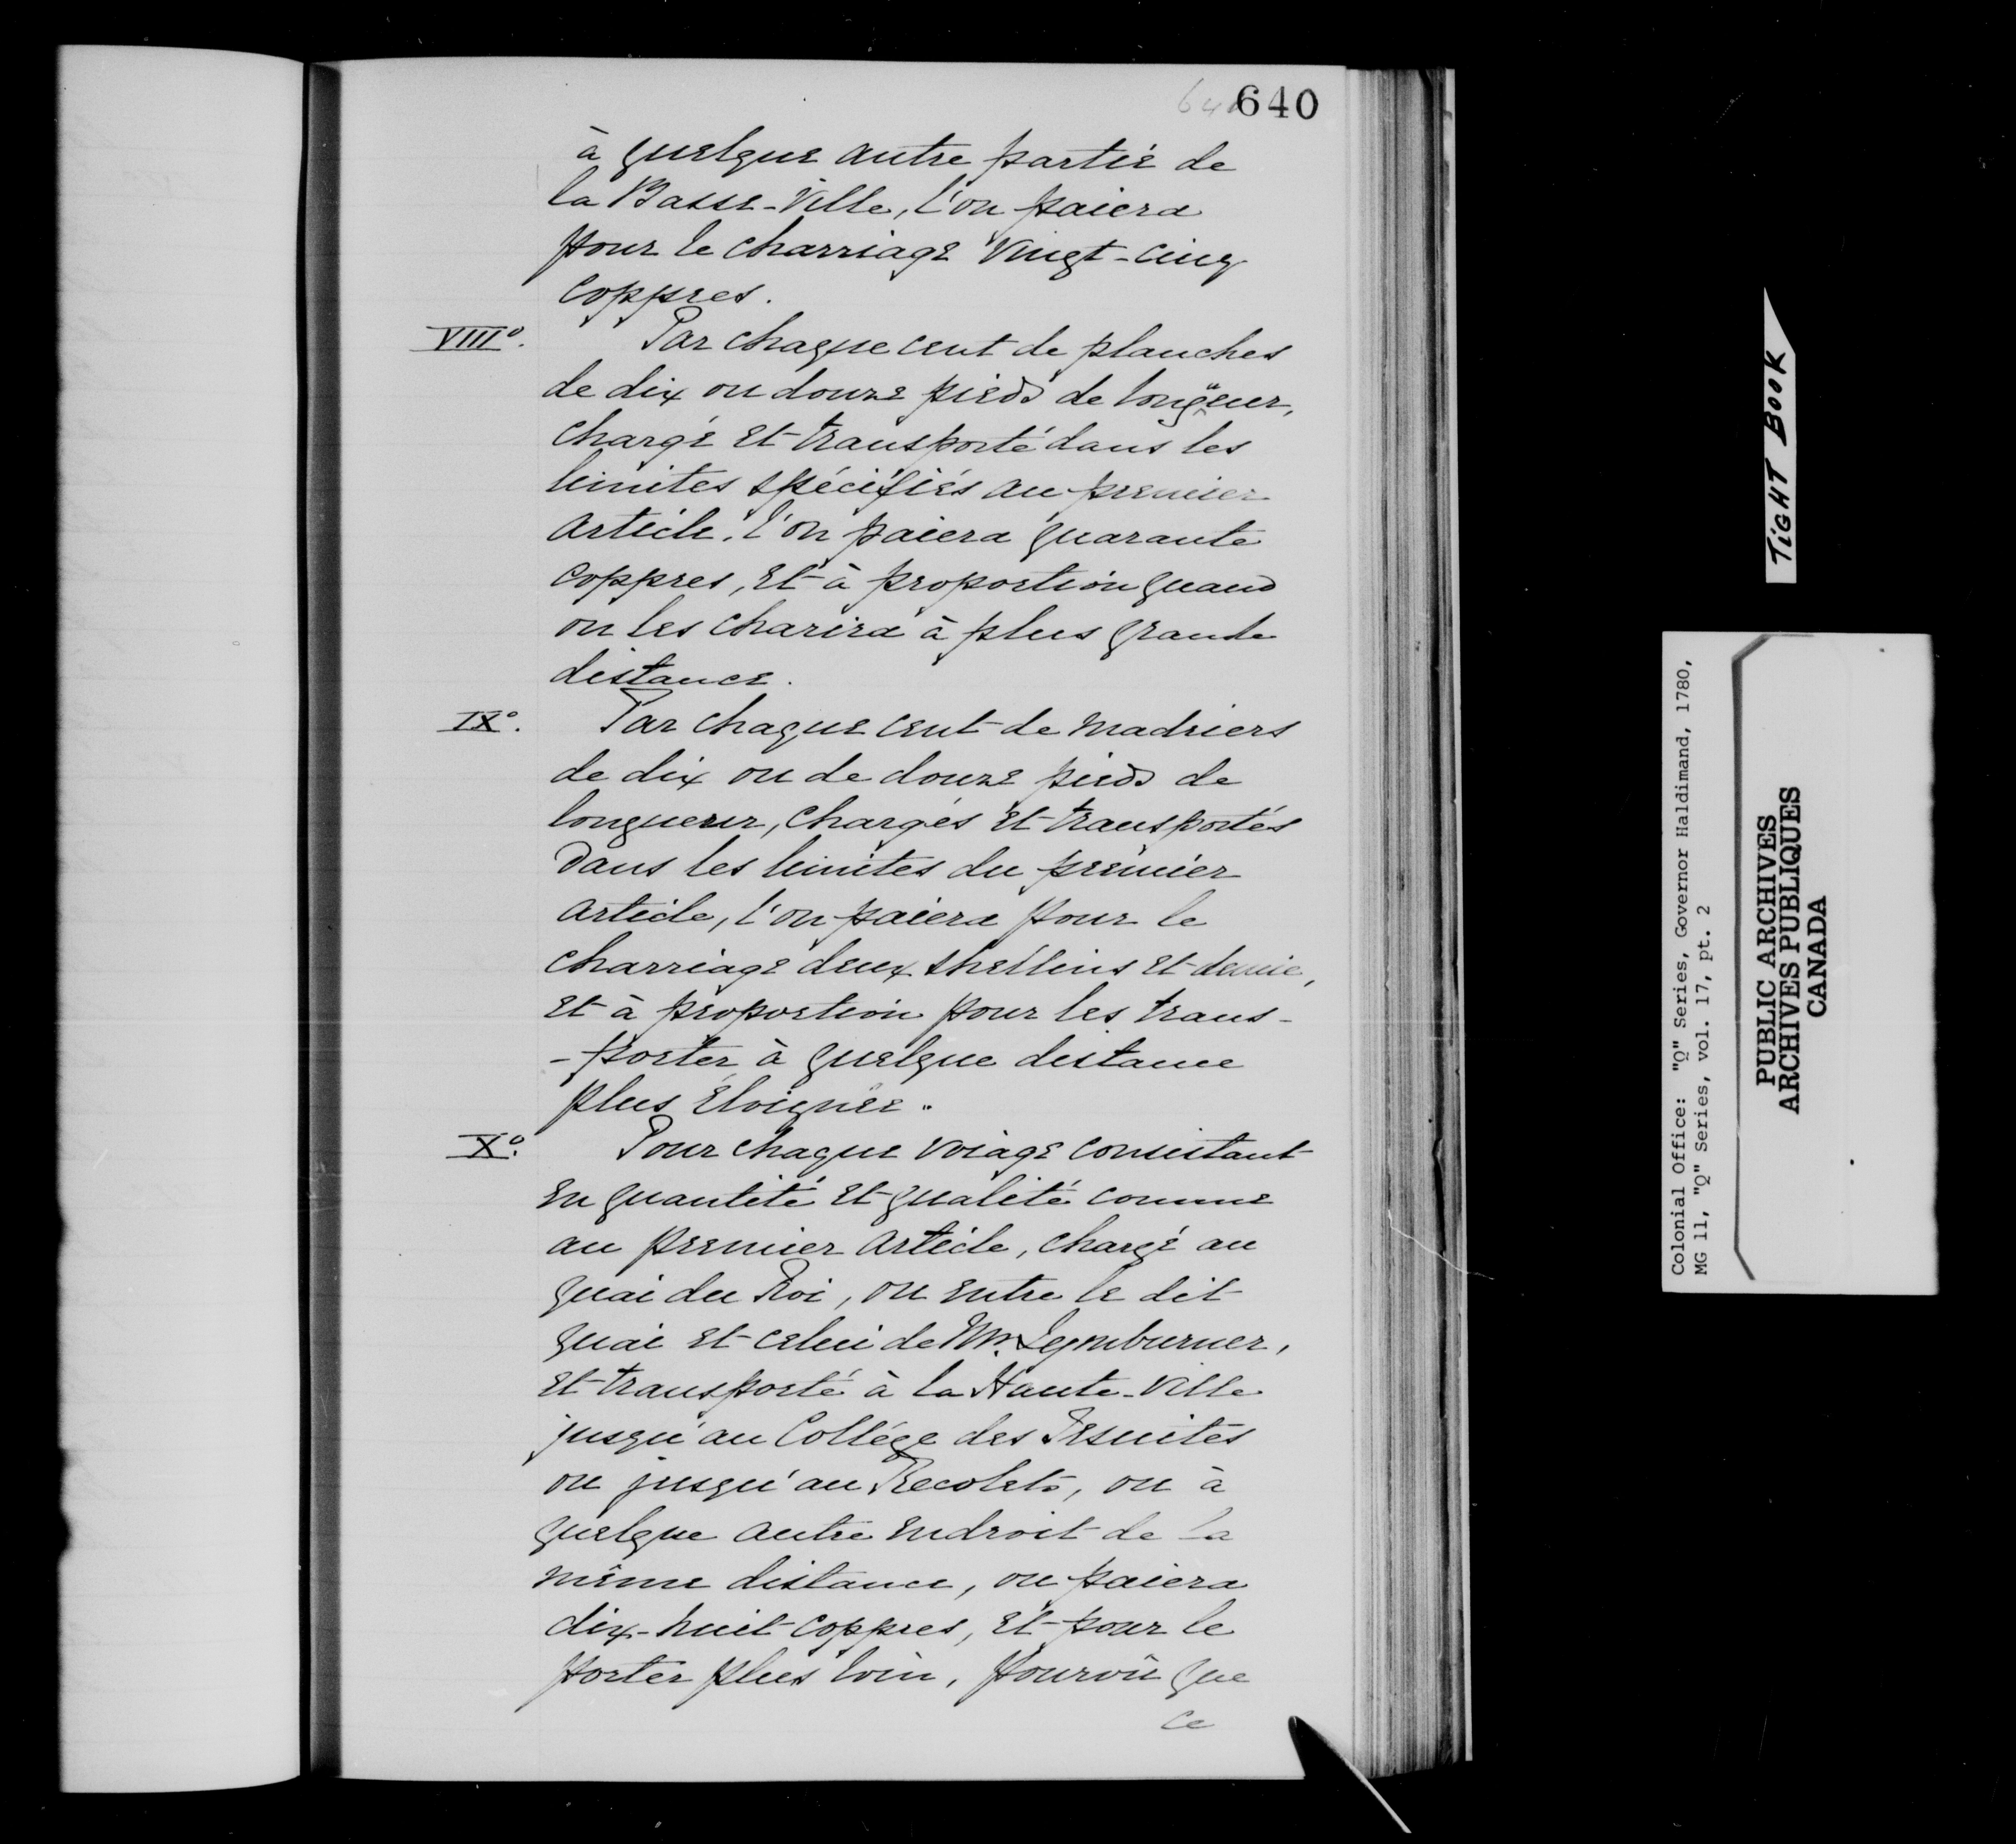 640
à quelque autre partie de
la Basse-Ville, l'on paiera
pour le charriage Vingt-cinq
coppres.
VIII°. Par chaque cent de planches
de dix ou douze pieds de longueur,
chargé et transporté dans les
limites spécifiés au premier
article, l'on paiera quarante
coppres, et à proportion quand
on les charira à plus grande
distance.
IX°. Par chaque cent de madriers
de dix ou de douze pieds de
longueur, chargés et transportés
dans les limites du premier
article, l'on paiera pour le
charriage deux shellins et demie,
et à proportion pour les trans-
-porter à quelque distance
plus éloignée.
X°. Pour chaque voiage consistant
en quantité et qualité comme
au premier article, chargé au
quai du Roi, ou entre le dit
quai et celui de Mr. Lymburner,
et transporté à la Haute-Ville
jusqu'au Collége des Jesuites
ou jusqu'au Recolets, ou à
quelque autre endroit de la
même distance, on paiera
dix-huit coppres, et pour le
porter plus loin, pourvû que
ce
TIGHT BOOK
Colonial Office: "Q" Series, Governor Haldimand, 1780,
MG 11, "Q" Series, vol. 17, pt. 2
PUBLIC ARCHIVES
ARCHIVES PUBLIQUES
CANADA